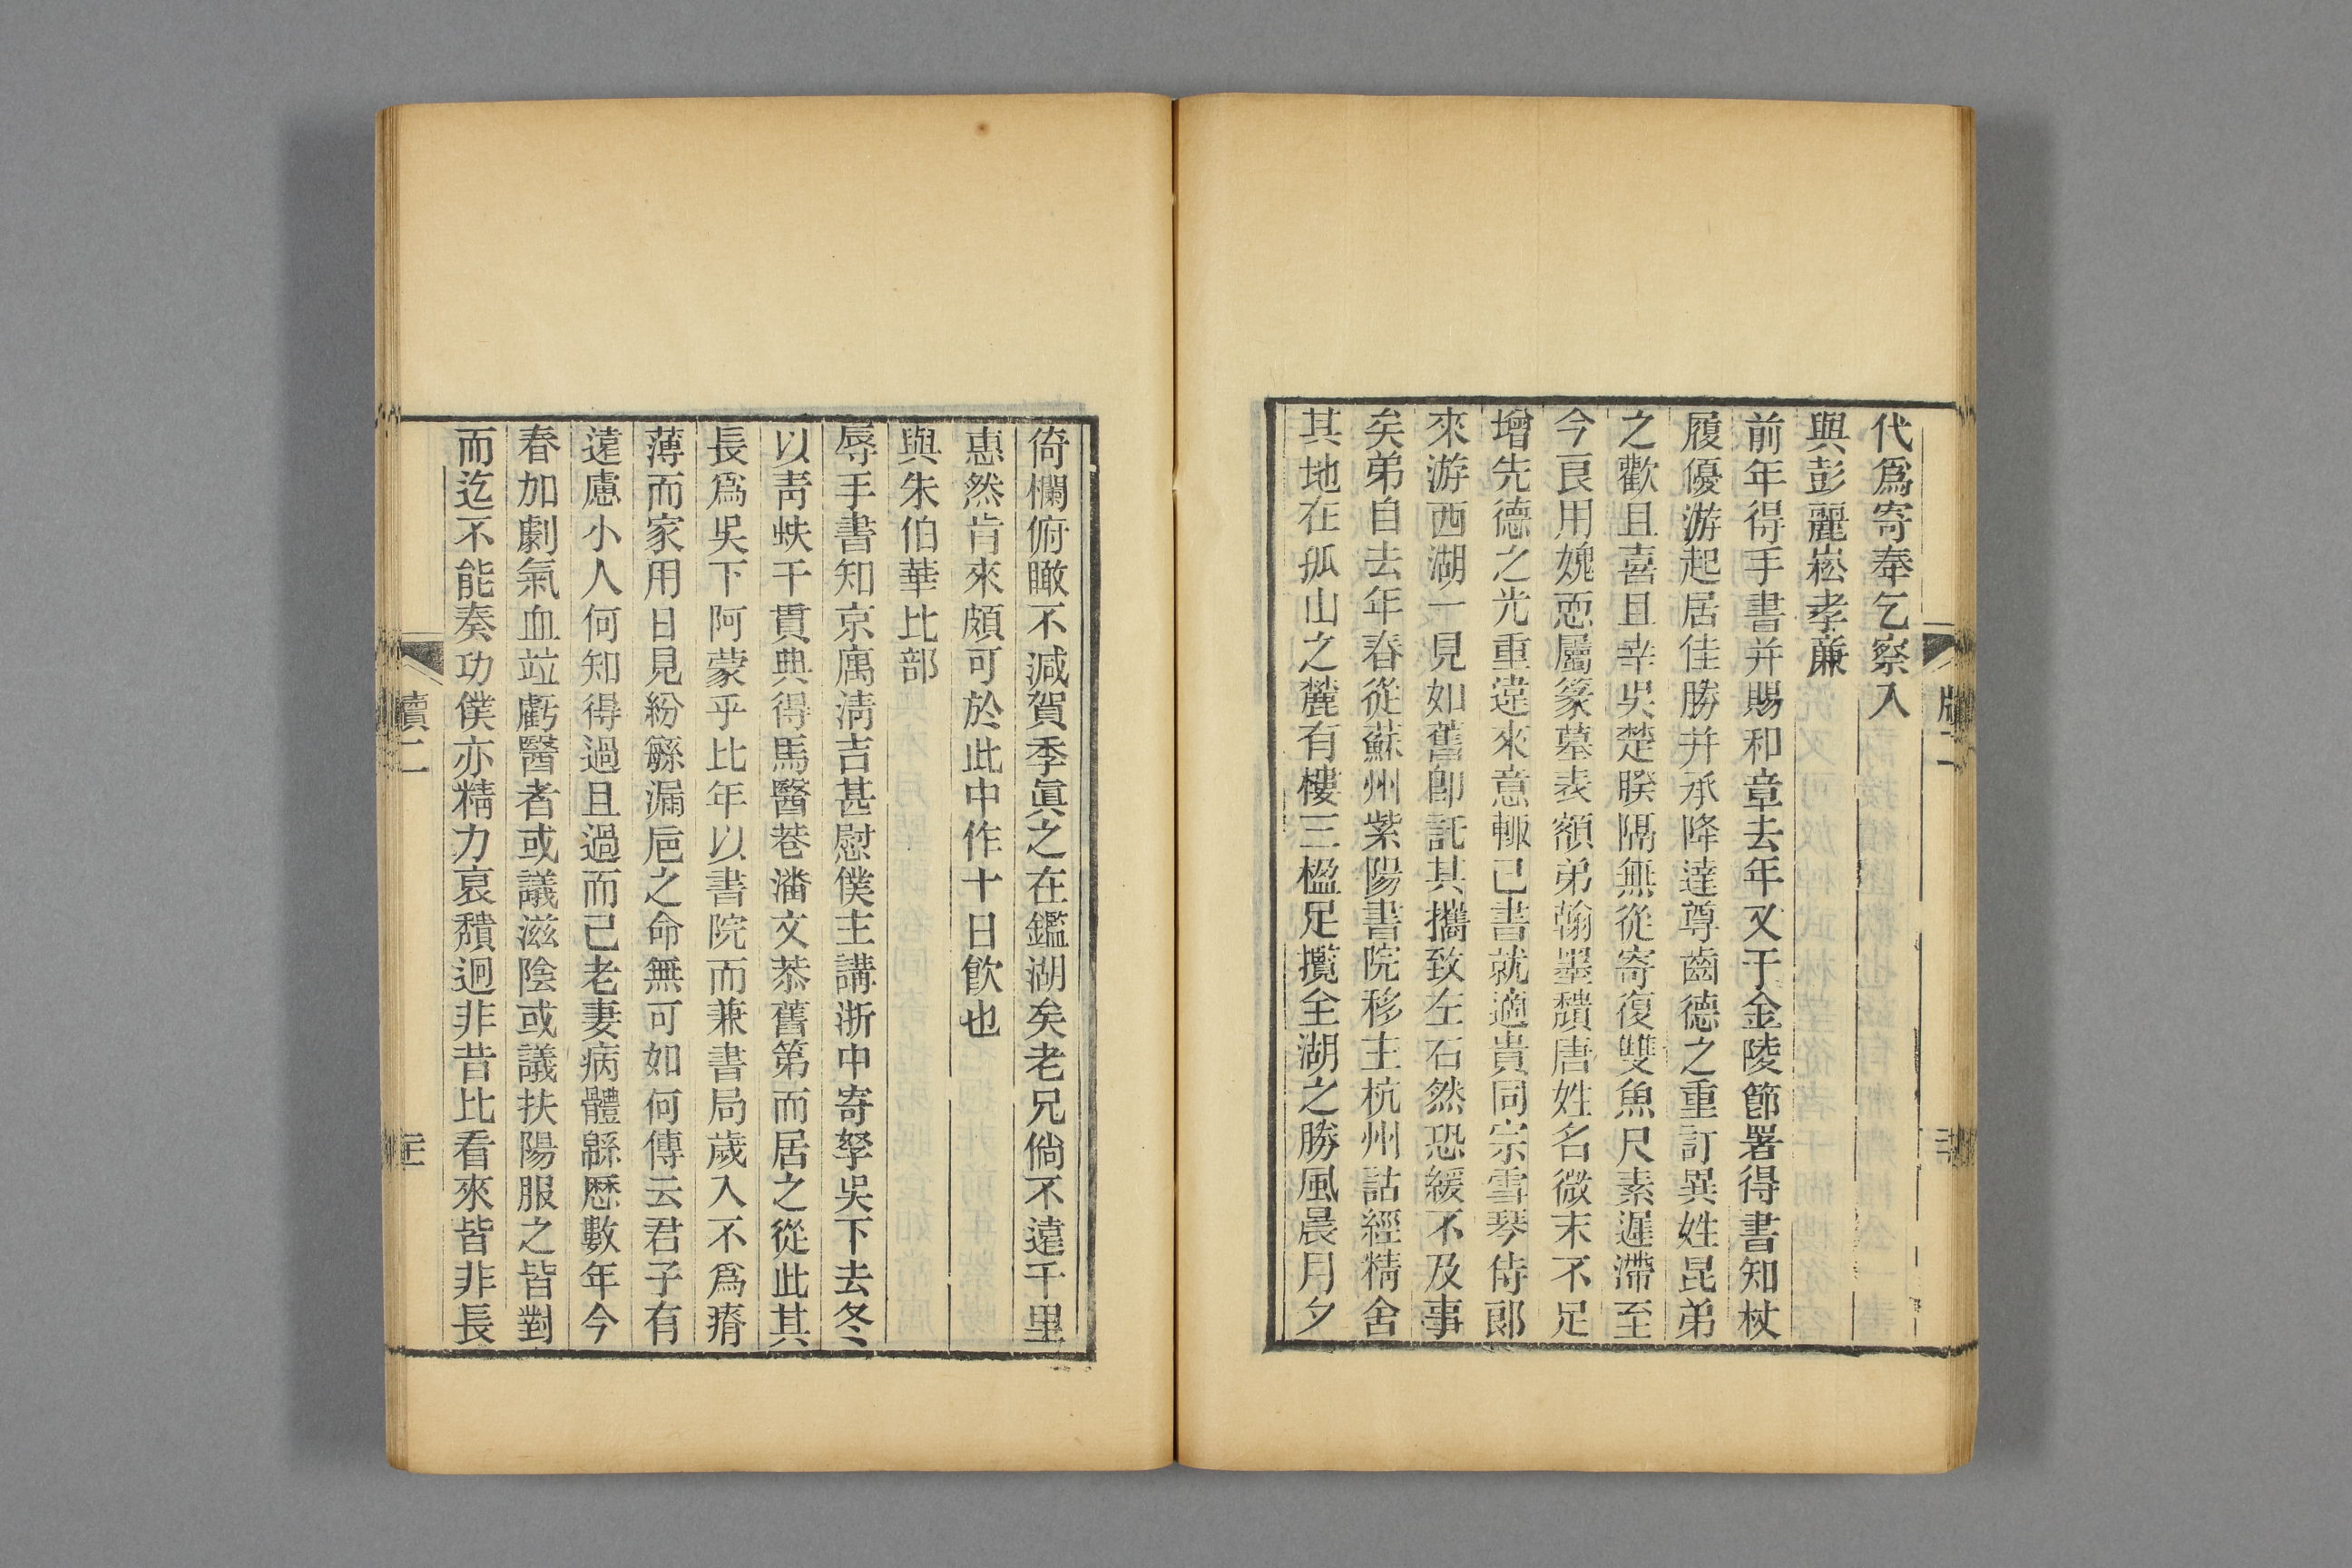 代爲寄奉乞察入
與彭麗崧孝廉
前年得手書并賜和章去年又于金陵節署得書知杖
履優游起居佳勝并承降達尊齒德之重訂異姓昆弟
之歡且喜且幸吳楚睽隔無從寄復雙魚尺素遲滯至
今良用媿恧屬篆墓表額弟翰墨穨唐姓名微末不足
增先德之光重違來意輒已書就適貴同宗雪琴侍郎
來游西湖一見如舊卽託其攜致左右然恐緩不及事
矣弟自去年春從蘇州紫陽書院移主杭州詁經精舍
其地在孤山之麓有樓三楹足攬全湖之勝風晨月夕
倚欄俯瞰不減賀季眞之在鑑湖矣老兄倘不遠千里
惠然肯來頗可於此中作十日飮也
與朱伯華比部
辱手書知京寓淸吉甚慰僕主講浙中寄孥吳下去冬
以靑蚨千貫典得馬醫巷潘文恭舊第而居之從此其
長爲吳下阿蒙乎比年以書院而兼書局歲入不爲瘠
薄而家用日見紛緐漏卮之命無可如何傳云君子有
遠慮小人何知得過且過而已老妻病體緜歷數年今
春加劇氣血竝虧醫者或議滋陰或議扶陽服之皆對
而迄不能奏功僕亦精力衰穨迥非昔比看來皆非長
牘二